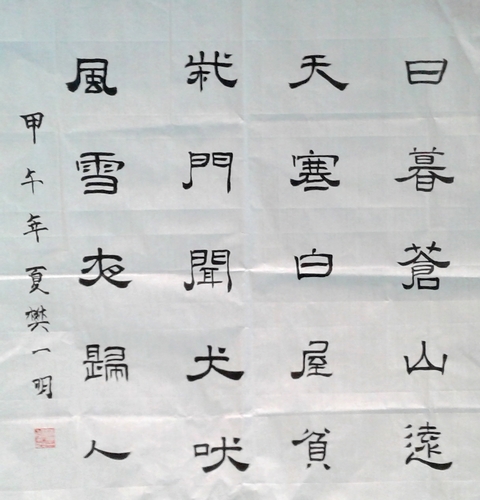 日暮蒼山遠
天寒白屋貧
柴門聞犬吠
風雪夜歸人
甲午年夏樊一明